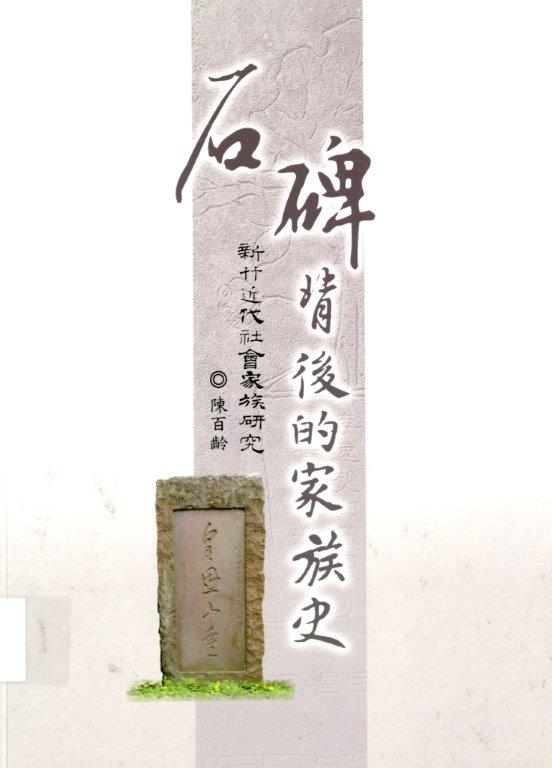 石碑背後的家族史
新竹近代社會家族研究
◎陳百齡